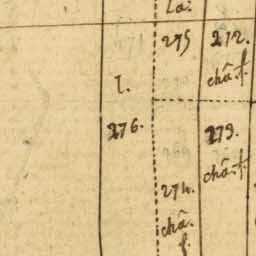 La:
275 272.
l. châ. f.
276. 273.
châ. f.
274.
châ.
f.